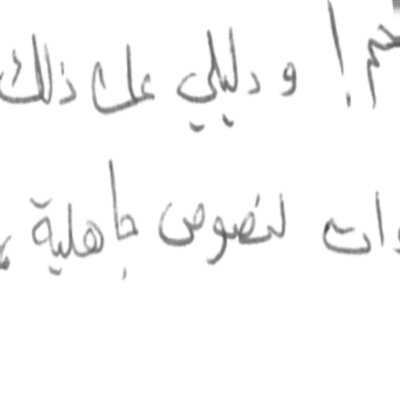 ! و دليلي على ذلك
لنصوص جاهلية